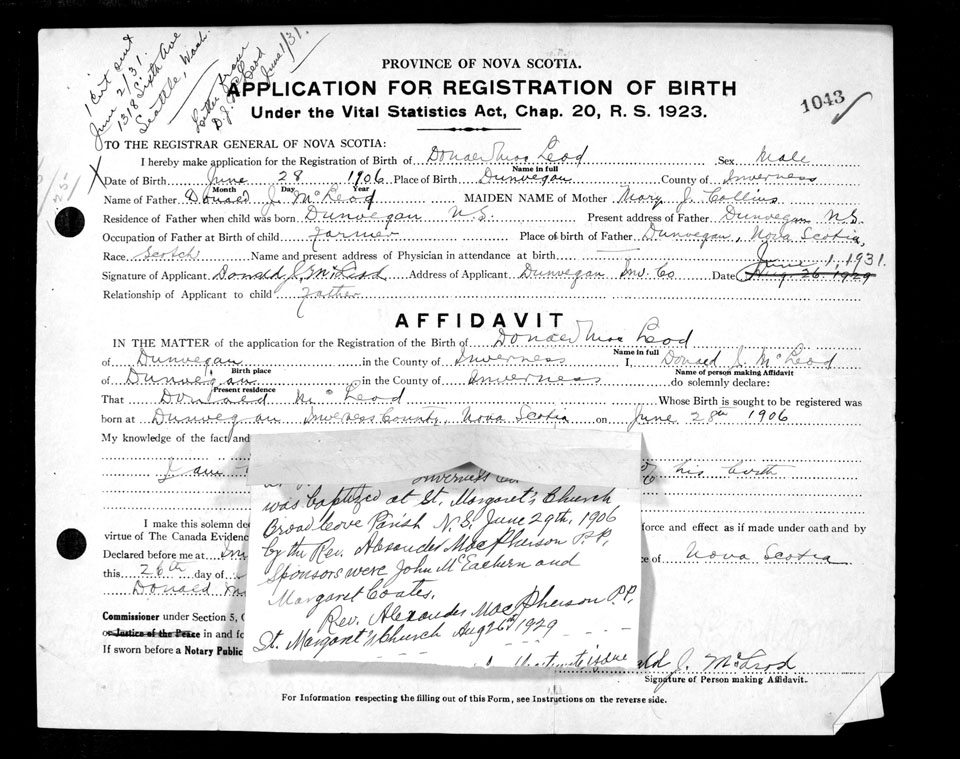 1 Cert sent
June 2/31.
1318 Sixth Ave
Seattle, Wash.
Letter from
D.J. McLeod
June 1/31.
PROVINCE OF NOVA SCOTIA.
APPLICATION FOR REGISTRATION OF BIRTH
Under the Vital Statistics Act, Chap. 20, R. S. 1923.
1043
TO THE REGISTRAR GENERAL OF NOVA SCOTIA:
I hereby make application for the Registration of Birth of Donald Mac Leod Sex Male
Name in full
X Date of Birth June 28 1906 Place of Birth Dunvegan County of Inverness
Month Day Year
Name of Father Donald J. McLeod MAIDEN NAME of Mother Mary J. Collins
Residence of Father when child was born Dunvegan N.S. Present address of Father Dunvegan N.S.
Occupation of Father at Birth of child Farmer Place of birth of Father Dunvegan, Nova Scotia,
Race Scotch Name and present address of Physician in attendance at birth
June 1, 1931.
Signature of Applicant Donald J. McLeod Address of Applicant Dunvegan Inv. Co Date Aug. 26, 1929
Relationship of Applicant to child Father
AFFIDAVIT
IN THE MATTER of the application for the Registration of the Birth of Donald Mac Leod
Name in full
of Dunvegan in the County of Inverness I, Donald J. McLeod
Birth place Name of person making Affidavit
of Dunvegan in the County of Inverness do solemnly declare:
Present residence
That Donald McLeod Whose Birth is sought to be registered was
born at Dunvegan Inverness County, Nova Scotia on June 28th 1906
My knowledge of the fact and
I am his birth
Inverness
was baptized at St. Margaret's Church
Broad Cove Parish N.S. June 29th, 1906
by the Rev. Alexander MacPherson P.P.
Sponsors were John McEachern and
Margaret Coates.
Rev. Alexander MacPherson P.P.
St. Margaret's Church Aug 26th 1929
I make this solemn dec force and effect as if made under oath and by
virtue of The Canada Evidenc
Declared before me at ce of Nova Scotia
this 26th day of
Donald
Commissioner under Section 5, C
or Justice of the Peace in and fo
If sworn before a Notary Public
ald J. McLeod
Signature of Person making Affidavit.
For Information respecting the filling out of this Form, see Instructions on the reverse side.